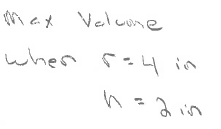 Max Volume
when r = 4 in
h = 2 in